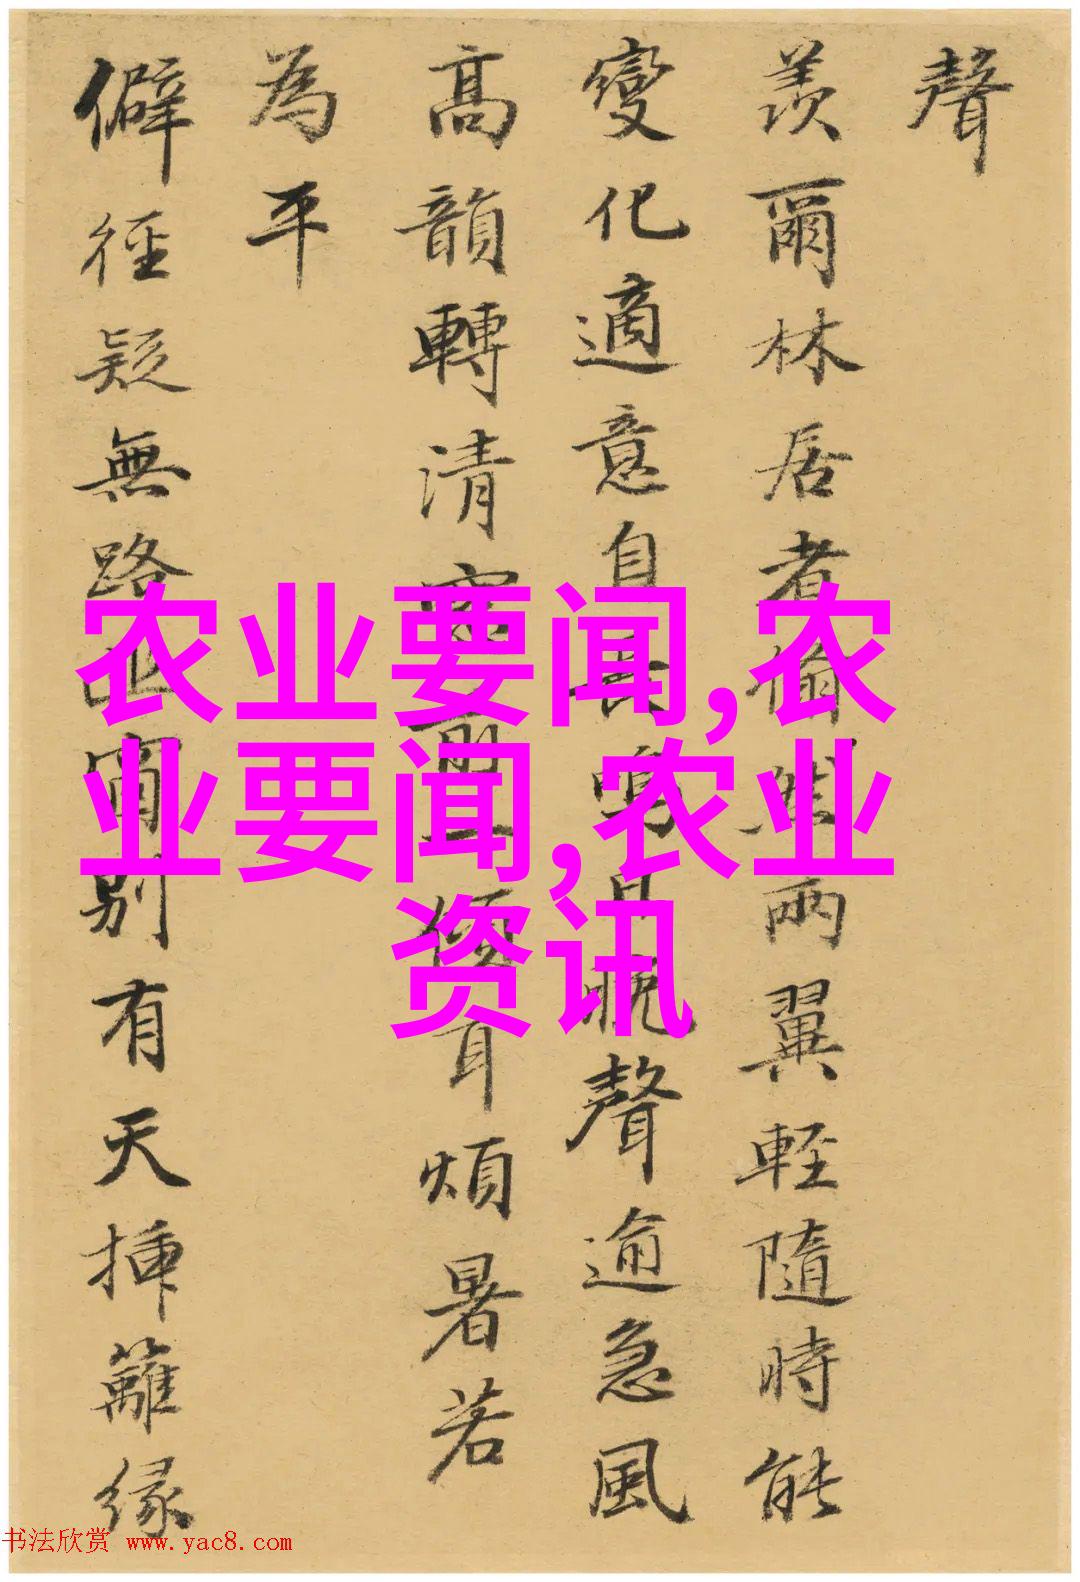 聲
羨爾林居者翛然兩翼輕隨時能
變化適意自長鳴日晚聲逾急風
高韻轉清一傾耳煩暑若
為平
僻徑疑無路別有天插籬緣
农业要闻,农
业要闻,农业
资讯
书法欣赏 www.yac8.com